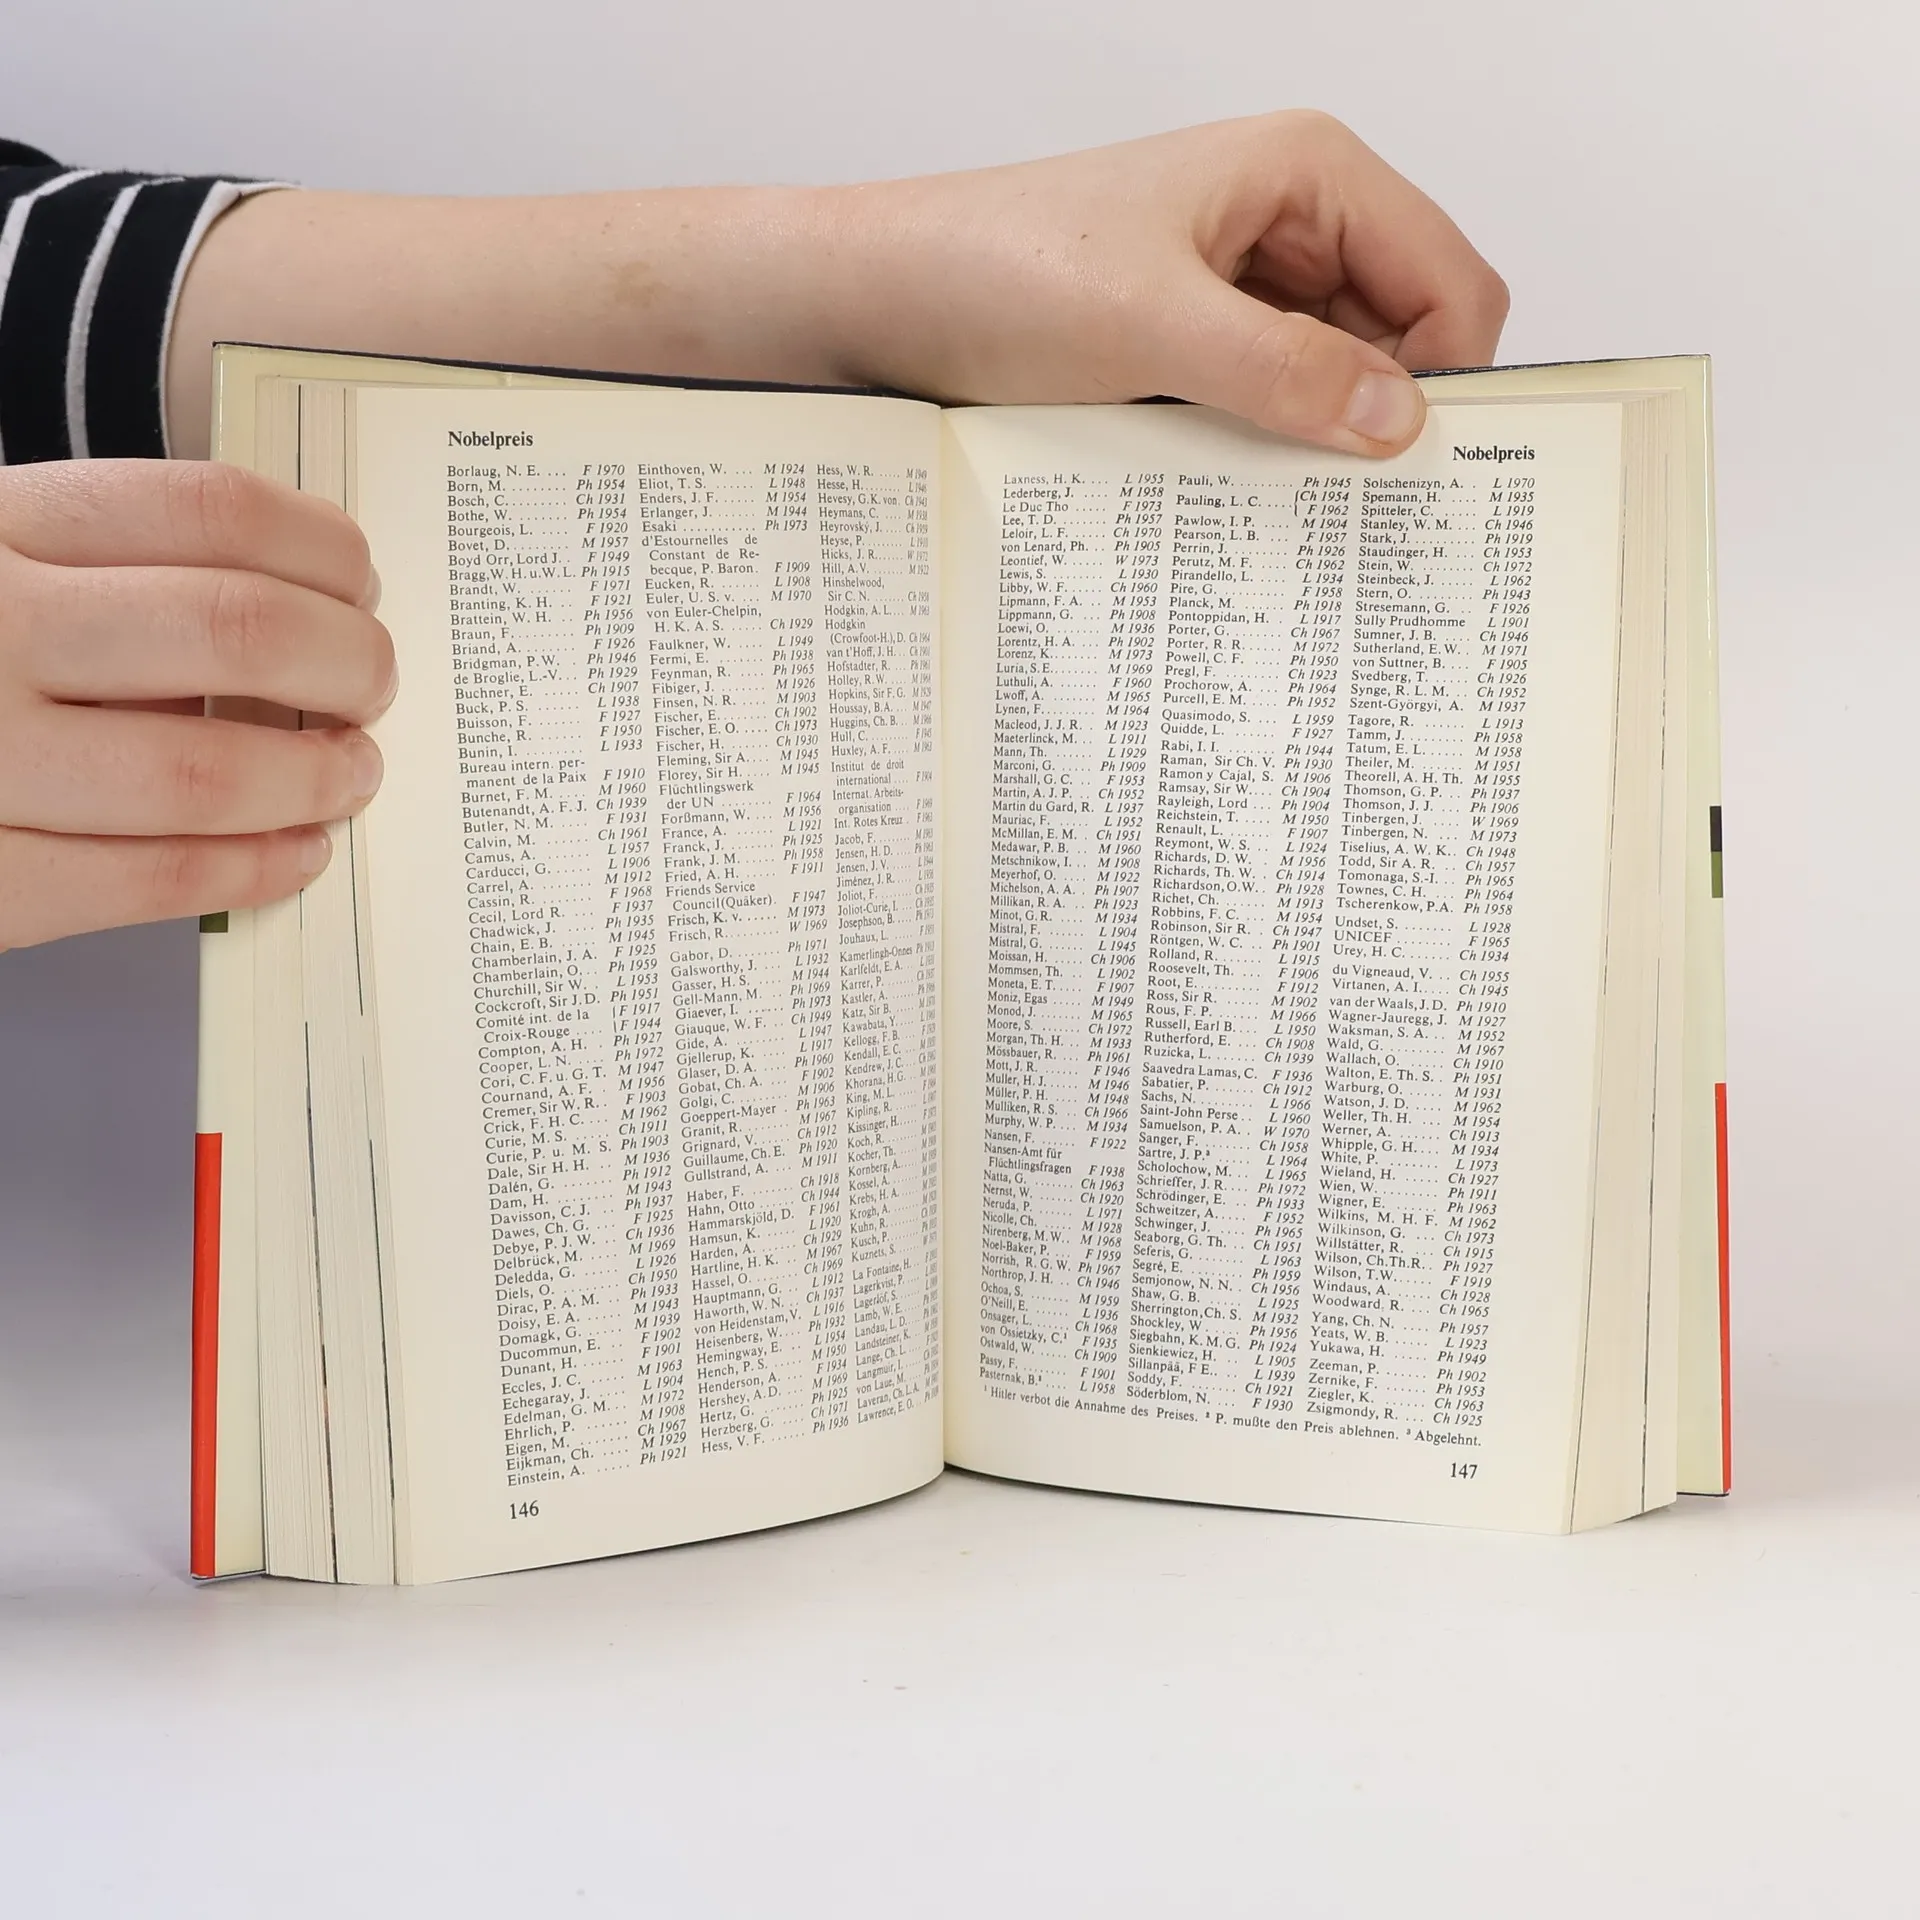 Nobelpreis
Borlaug, N. E. .... F 1970
Born, M. ........ Ph 1954
Bosch, C. ........ Ch 1931
Bothe, W. ....... Ph 1954
Bourgeois, L. .... F 1920
Bovet, D. ........ M 1957
Boyd Orr, Lord J. . F 1949
Bragg, W. H. u. W. L. Ph 1915
Brandt, W. ...... F 1971
Branting, K. H. ... F 1921
Brattein, W. H. ... Ph 1956
Braun, F. ........ Ph 1909
Briand, A. ....... F 1926
Bridgman, P. W. . Ph 1946
de Broglie, L.-V. .. Ph 1929
Buchner, E. ..... Ch 1907
Buck, P. S. ...... L 1938
Buisson, F. ...... F 1927
Bunche, R. ...... F 1950
Bunin, I. ........ L 1933
Bureau intern. per-
manent de la Paix F 1910
Burnet, F. M. .... M 1960
Butenandt, A. F. J. Ch 1939
Butler, N. M. .... F 1931
Calvin, M. ...... Ch 1961
Camus, A. ...... L 1957
Carducci, G. ..... L 1906
Carrel, A. ....... M 1912
Cassin, R. ....... F 1968
Cecil, Lord R. ... F 1937
Chadwick, J. .... Ph 1935
Chain, E. B. ..... M 1945
Chamberlain, J. A. F 1925
Chamberlain, O. .. Ph 1959
Churchill, Sir W. . L 1953
Cockcroft, Sir J. D. Ph 1951
Comité int. de la { F 1917
Croix-Rouge .... { F 1944
Compton, A. H. . Ph 1927
Cooper, L. N. ... Ph 1972
Cori, C. F. u. G. T. M 1947
Cournand, A. F. . M 1956
Cremer, Sir W. R. . F 1903
Crick, F. H. C. ... M 1962
Curie, M. S. ..... Ch 1911
Curie, P. u. M. S. Ph 1903
Dale, Sir H. H. .. M 1936
Dalén, G. ....... Ph 1912
Dam, H. ........ M 1943
Davisson, C. J. .. Ph 1937
Dawes, Ch. G. ... F 1925
Debye, P. J. W. .. Ch 1936
Delbrück, M. .... M 1969
Deledda, G. ..... L 1926
Diels, O. ........ Ch 1950
Dirac, P. A. M. .. Ph 1933
Doisy, E. A. ..... M 1943
Domagk, G. ..... M 1939
Ducommun, E. .. F 1902
Dunant, H. ...... F 1901
Eccles, J. C. ..... M 1963
Echegaray, J. .... L 1904
Edelman, G. M. .. M 1972
Ehrlich, P. ...... M 1908
Eigen, M. ....... Ch 1967
Eijkman, Ch. .... M 1929
Einstein, A. ..... Ph 1921
Einthoven, W. ... M 1924
Eliot, T. S. ...... L 1948
Enders, J. F. ..... M 1954
Erlanger, J. ...... M 1944
Esaki ........... Ph 1973
d'Estournelles de
Constant de Re-
becque, P. Baron . F 1909
Eucken, R. ...... L 1908
Euler, U. S. v. ... M 1970
von Euler-Chelpin,
H. K. A. S. ..... Ch 1929
Faulkner, W. .... L 1949
Fermi, E. ....... Ph 1938
Feynman, R. .... Ph 1965
Fibiger, J. ....... M 1926
Finsen, N. R. .... M 1903
Fischer, E. ...... Ch 1902
Fischer, E. O. .... Ch 1973
Fischer, H. ...... Ch 1930
Fleming, Sir A. ... M 1945
Florey, Sir H. .... M 1945
Flüchtlingswerk
der UN ........ F 1964
Forßmann, W. ... M 1956
France, A. ...... L 1921
Franck, J. ....... Ph 1925
Frank, J. M. ..... Ph 1958
Fried, A. H. ..... F 1911
Friends Service
Council (Quäker) . F 1947
Frisch, K. v. ..... M 1973
Frisch, R. ....... W 1969
Gabor, D. ....... Ph 1971
Galsworthy, J. ... L 1932
Gasser, H. S. .... M 1944
Gell-Mann, M. ... Ph 1969
Giaever, I. ...... Ph 1973
Giauque, W. F. .. Ch 1949
Gide, A. ........ L 1947
Gjellerup, K. .... L 1917
Glaser, D. A. .... Ph 1960
Gobat, Ch. A. ... F 1902
Golgi, C. ....... M 1906
Goeppert-Mayer . Ph 1963
Granit, R. ...... M 1967
Grignard, V. ..... Ch 1912
Guillaume, Ch. E. Ph 1920
Gullstrand, A. ... M 1911
Haber, F. ....... Ch 1918
Hahn, Otto ..... Ch 1944
Hammarskjöld, D. F 1961
Hamsun, K. ..... L 1920
Harden, A. ...... Ch 1929
Hartline, H. K. .. M 1967
Hassel, O. ....... Ch 1969
Hauptmann, G. .. L 1912
Haworth, W. N. .. Ch 1937
von Heidenstam, V. L 1916
Heisenberg, W. ... Ph 1932
Hemingway, E. .. L 1954
Hench, P. S. ..... M 1950
Henderson, A. ... F 1934
Hershey, A. D. ... M 1969
Hertz, G. ....... Ph 1925
Herzberg, G. .... Ch 1971
Hess, V. F. ...... Ph 1936
Hess, W. R. ..... M 1949
Hesse, H. ....... L 1946
Hevesy, G. K. von . Ch 1943
Heymans, C. .... M 1938
Heyrovský, J. .... Ch 1959
Heyse, P. ....... L 1910
Hicks, J. R. ..... W 1972
Hill, A. V. ...... M 1922
Hinshelwood,
Sir C. N. ...... Ch 1956
Hodgkin, A. L. ... M 1963
Hodgkin
(Crowfoot-H.), D. Ch 1964
van t'Hoff, J. H. .. Ch 1901
Hofstadter, R. ... Ph 1961
Holley, R. W. .... M 1968
Hopkins, Sir F. G. M 1929
Houssay, B. A. ... M 1947
Huggins, Ch. B. .. M 1966
Hull, C. ........ F 1945
Huxley, A. F. .... M 1963
Institut de droit
international .... F 1904
Internat. Arbeits-
organisation .... F 1969
Int. Rotes Kreuz . F 1963
Jacob, F. ....... M 1965
Jensen, H. D. .... Ph 1963
Jensen, J. V. ..... L 1944
Jiménez, J. R. .... L 1956
Joliot, F. ....... Ch 1935
Joliot-Curie, I. ... Ch 1935
Josephson, B. .... Ph 1973
Jouhaux, L. ..... F 1951
Kamerlingh-Onnes Ph 1913
Karlfeldt, E. A. .. L 1931
Karrer, P. ....... Ch 1937
Kastler, A. ...... Ph 1966
Katz, Sir B. ..... M 1970
Kawabata, Y. .... L 1968
Kellogg, F. B. ... F 1929
Kendall, E. C. ... M 1950
Kendrew, J. C. ... Ch 1962
Khorana, H. G. .. M 1968
King, M. L. ..... F 1964
Kipling, R. ..... L 1907
Kissinger, H. .... F 1973
Koch, R. ....... M 1905
Kocher, Th. ..... M 1909
Kornberg, A. .... M 1959
Kossel, A. ...... M 1910
Krebs, H. A. .... M 1953
Krogh, A. ...... M 1920
Kuhn, R. ....... Ch 1938
Kusch, P. ....... Ph 1955
Kuznets, S. ..... W 1971
La Fontaine, H. .. F 1913
Lagerkvist, P. ... L 1951
Lagerlöf, S. ..... L 1909
Lamb, W. E. .... Ph 1955
Landau, L. D. ... Ph 1962
Landsteiner, K. .. M 1930
Lange, Ch. L. ... F 1921
Langmuir, I. .... Ch 1932
von Laue, M. ... Ph 1914
Laveran, Ch. L. A. M 1907
Lawrence, E. O. . Ph 1939
146
Nobelpreis
Laxness, H. K. ... L 1955
Lederberg, J. .... M 1958
Le Duc Tho .... F 1973
Lee, T. D. ...... Ph 1957
Leloir, L. F. ..... Ch 1970
von Lenard, Ph. .. Ph 1905
Leontief, W. .... W 1973
Lewis, S. ....... L 1930
Libby, W. F. .... Ch 1960
Lipmann, F. A. .. M 1953
Lippmann, G. ... Ph 1908
Loewi, O. ...... M 1936
Lorentz, H. A. ... Ph 1902
Lorenz, K. ...... M 1973
Luria, S. E. ..... M 1969
Luthuli, A. ..... F 1960
Lwoff, A. ....... M 1965
Lynen, F. ....... M 1964
Macleod, J. J. R. . M 1923
Maeterlinck, M. .. L 1911
Mann, Th. ...... L 1929
Marconi, G. ..... Ph 1909
Marshall, G. C. .. F 1953
Martin, A. J. P. .. Ch 1952
Martin du Gard, R. L 1937
Mauriac, F. ..... L 1952
McMillan, E. M. . Ch 1951
Medawar, P. B. .. M 1960
Metschnikow, I. .. M 1908
Meyerhof, O. .... M 1922
Michelson, A. A. . Ph 1907
Millikan, R. A. .. Ph 1923
Minot, G. R. .... M 1934
Mistral, F. ...... L 1904
Mistral, G. ..... L 1945
Moissan, H. .... Ch 1906
Mommsen, Th. .. L 1902
Moneta, E. T. ... F 1907
Moniz, Egas .... M 1949
Monod, J. ...... M 1965
Moore, S. ...... Ch 1972
Morgan, Th. H. .. M 1933
Mössbauer, R. ... Ph 1961
Mott, J. R. ..... F 1946
Muller, H. J. .... M 1946
Müller, P. H. .... M 1948
Mulliken, R. S. .. Ch 1966
Murphy, W. P. .. M 1934
Nansen, F. ..... F 1922
Nansen-Amt für
Flüchtlingsfragen F 1938
Natta, G. ....... Ch 1963
Nernst, W. ..... Ch 1920
Neruda, P. ..... L 1971
Nicolle, Ch. .... M 1928
Nirenberg, M. W. . M 1968
Noel-Baker, P. .. F 1959
Norrish, R. G. W. Ph 1967
Northrop, J. H. .. Ch 1946
Ochoa, S. ...... M 1959
O'Neill, E. ..... L 1936
Onsager, L. .... Ch 1968
von Ossietzky, C.¹ F 1935
Ostwald, W. .... Ch 1909
Passy, F. ....... F 1901
Pasternak, B.² ... L 1958
Pauli, W. ....... Ph 1945
Pauling, L. C. .... { Ch 1954
{ F 1962
Pawlow, I. P. .... M 1904
Pearson, L. B. ... F 1957
Perrin, J. ....... Ph 1926
Perutz, M. F. .... Ch 1962
Pirandello, L. .... L 1934
Pire, G. ........ F 1958
Planck, M. ...... Ph 1918
Pontoppidan, H. . L 1917
Porter, G. ....... Ch 1967
Porter, R. R. .... M 1972
Powell, C. F. .... Ph 1950
Pregl, F. ........ Ch 1923
Prochorow, A. ... Ph 1964
Purcell, E. M. ... Ph 1952
Quasimodo, S. ... L 1959
Quidde, L. ...... F 1927
Rabi, I. I. ...... Ph 1944
Raman, Sir Ch. V. Ph 1930
Ramon y Cajal, S. M 1906
Ramsay, Sir W. ... Ch 1904
Rayleigh, Lord ... Ph 1904
Reichstein, T. ... M 1950
Renault, L. ..... F 1907
Reymont, W. S. .. L 1924
Richards, D. W. . M 1956
Richards, Th. W. . Ch 1914
Richardson, O. W. . Ph 1928
Richet, Ch. ..... M 1913
Robbins, F. C. .. M 1954
Robinson, Sir R. . Ch 1947
Röntgen, W. C. . Ph 1901
Rolland, R. ..... L 1915
Roosevelt, Th. .. F 1906
Root, E. ........ F 1912
Ross, Sir R. .... M 1902
Rous, F. P. ..... M 1966
Russell, Earl B. .. L 1950
Rutherford, E. .. Ch 1908
Ruzicka, L. .... Ch 1939
Saavedra Lamas, C. F 1936
Sabatier, P. .... Ch 1912
Sachs, N. ...... L 1966
Saint-John Perse .. L 1960
Samuelson, P. A. . W 1970
Sanger, F. ...... Ch 1958
Sartre, J. P.³ .... L 1964
Scholochow, M. . L 1965
Schrieffer, J. R. .. Ph 1972
Schrödinger, E. . Ph 1933
Schweitzer, A. .. F 1952
Schwinger, J. ... Ph 1965
Seaborg, G. Th. . Ch 1951
Seferis, G. ..... L 1963
Segré, E. ...... Ph 1959
Semjonow, N. N. . Ch 1956
Shaw, G. B. .... L 1925
Sherrington, Ch. S. M 1932
Shockley, W. ... Ph 1956
Siegbahn, K. M. G. Ph 1924
Sienkiewicz, H. . L 1905
Sillanpää, F E. .. L 1939
Soddy, F. ...... Ch 1921
Söderblom, N. .. F 1930
Solschenizyn, A. . L 1970
Spemann, H. .... M 1935
Spitteler, C. ..... L 1919
Stanley, W. M. ... Ch 1946
Stark, J. ........ Ph 1919
Staudinger, H. ... Ch 1953
Stein, W. ....... Ch 1972
Steinbeck, J. .... L 1962
Stern, O. ....... Ph 1943
Stresemann, G. .. F 1926
Sully Prudhomme L 1901
Sumner, J. B. ... Ch 1946
Sutherland, E. W. . M 1971
von Suttner, B. ... F 1905
Svedberg, T. .... Ch 1926
Synge, R. L. M. .. Ch 1952
Szent-Györgyi, A. M 1937
Tagore, R. ...... L 1913
Tamm, J. ....... Ph 1958
Tatum, E. L. .... M 1958
Theiler, M. ..... M 1951
Theorell, A. H. Th. M 1955
Thomson, G. P. .. Ph 1937
Thomson, J. J. ... Ph 1906
Tinbergen, J. .... W 1969
Tinbergen, N. ... M 1973
Tiselius, A. W. K. . Ch 1948
Todd, Sir A. R. .. Ch 1957
Tomonaga, S.-I. .. Ph 1965
Townes, C. H. ... Ph 1964
Tscherenkow, P. A. Ph 1958
Undset, S. ...... L 1928
UNICEF ....... F 1965
Urey, H. C. ..... Ch 1934
du Vigneaud, V. .. Ch 1955
Virtanen, A. I. ... Ch 1945
van der Waals, J. D. Ph 1910
Wagner-Jauregg, J. M 1927
Waksman, S. A. .. M 1952
Wald, G. ....... M 1967
Wallach, O. .... Ch 1910
Walton, E. Th. S. . Ph 1951
Warburg, O. .... M 1931
Watson, J. D. ... M 1962
Weller, Th. H. .. M 1954
Werner, A. ..... Ch 1913
Whipple, G. H. .. M 1934
White, P. ....... L 1973
Wieland, H. .... Ch 1927
Wien, W. ....... Ph 1911
Wigner, E. ..... Ph 1963
Wilkins, M. H. F. M 1962
Wilkinson, G. ... Ch 1973
Willstätter, R. .. Ch 1915
Wilson, Ch. Th. R. . Ph 1927
Wilson, T. W. .... F 1919
Windaus, A. .... Ch 1928
Woodward, R. .. Ch 1965
Yang, Ch. N. ... Ph 1957
Yeats, W. B. .... L 1923
Yukawa, H. .... Ph 1949
Zeeman, P. .... Ph 1902
Zernike, F. .... Ph 1953
Ziegler, K. ..... Ch 1963
Zsigmondy, R. .. Ch 1925
¹ Hitler verbot die Annahme des Preises. ² P. mußte den Preis ablehnen. ³ Abgelehnt.
147